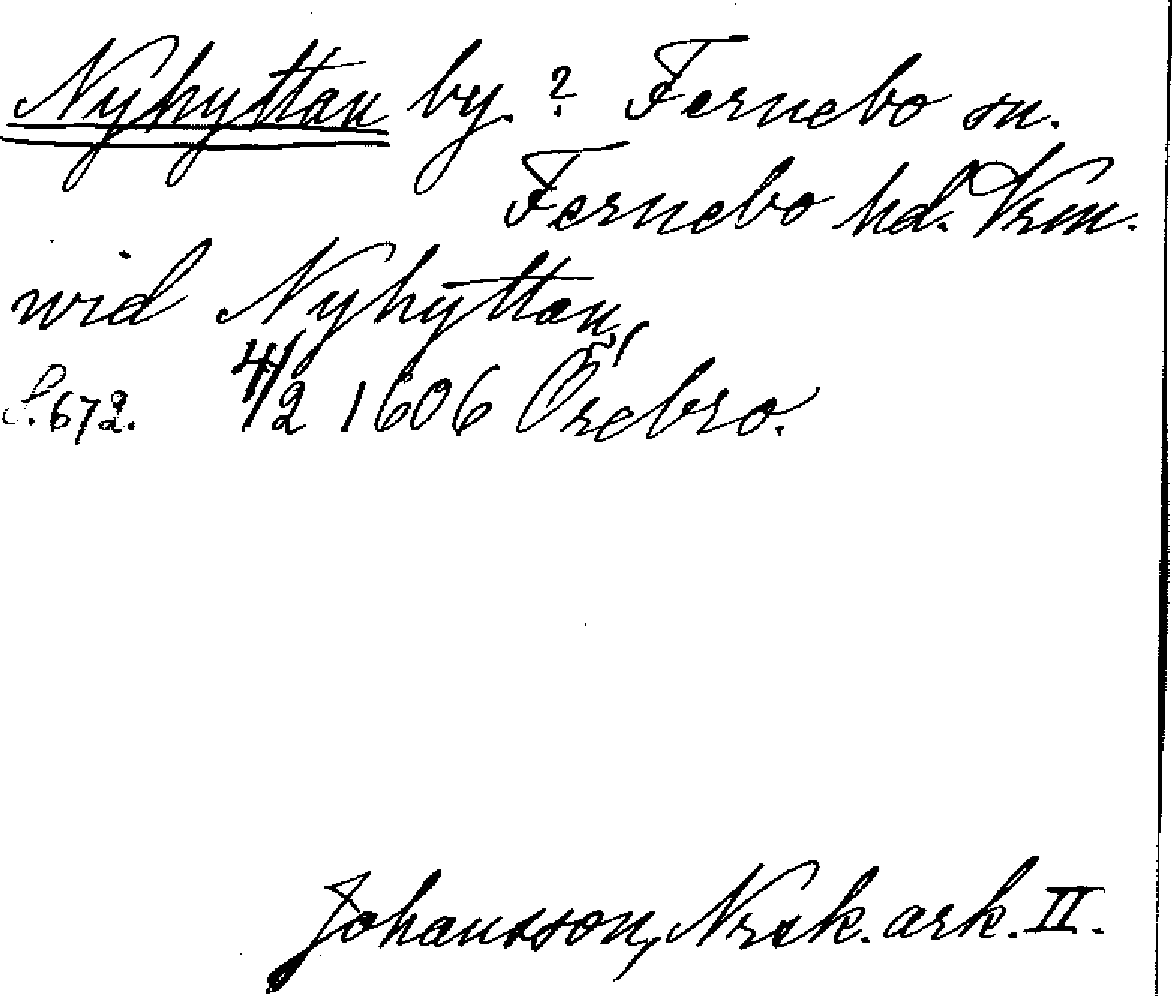 Nyhyttan by.? Fernebo sn.
Fernebo hd. Vrm.
wid Nyhyttan,
S. 672. 4/2 1606 Örebro.
Johansson, Nrsk. ark. II.